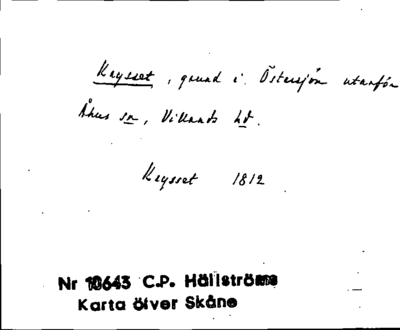 Kaysset, grund i Östersjön utanför
Åhus sn, Villands hd.
Kaysset 1812
Nr 10643 C.P. Hällströms
Karta öfver Skåne